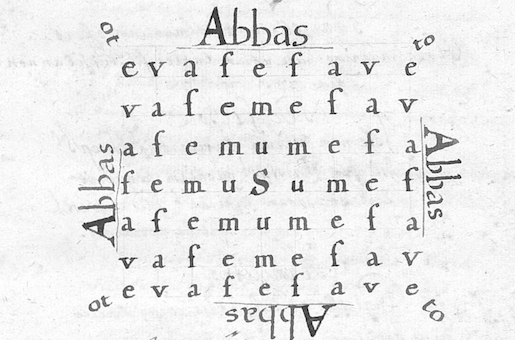 Abbas
to to
e v a f e f a v e
v a f e m e f a v
a f e m u m e f a
Abbas f e m u S u m e f Abbas
a f e m u m e f a
v a f e m e f a v
e v a f e f a v e
ot to
Abbas